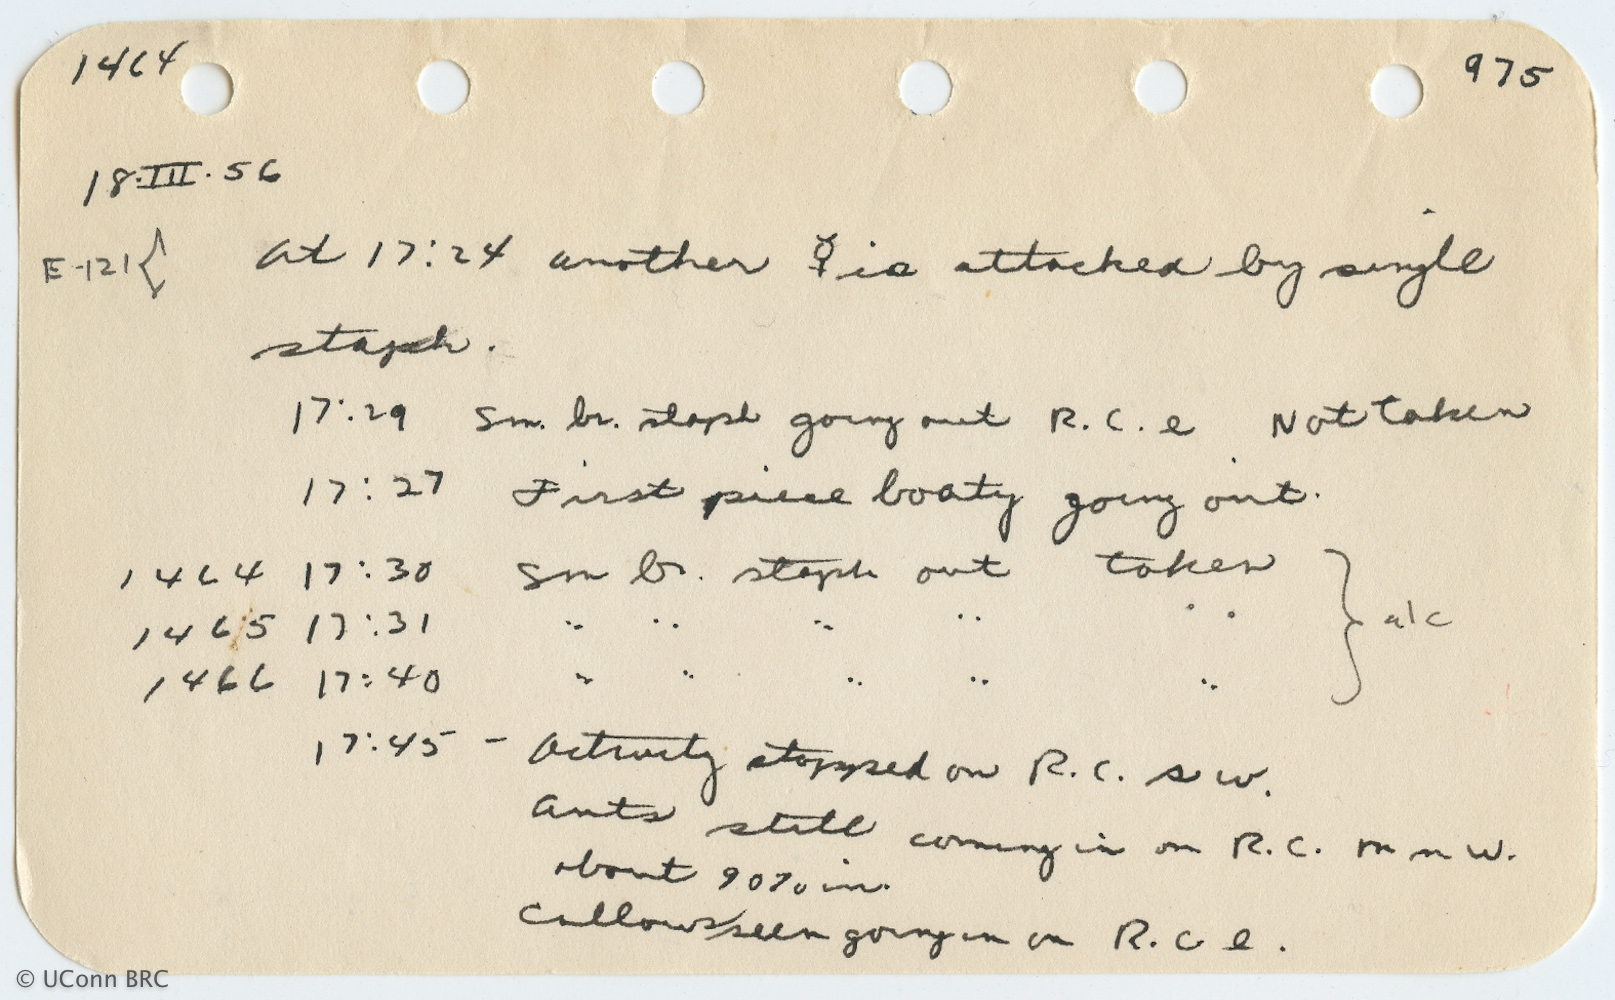 1464 975
18.III.56
E-121 { At 17:24 another ☿ is attacked by single
staph.
17:29 Sm. br. staph going out R.C. e Not taken
17:27 First piece booty going out.
1464 17:30 Sm br. staph out taken } alc
1465 17:31 " " " " "
1466 17:40 " " " " "
17:45 - Activity stopped on R.C. s w.
Ants still coming in on R.C. n w.
about 90% in.
Callows seen going in on R.C e.
© UConn BRC